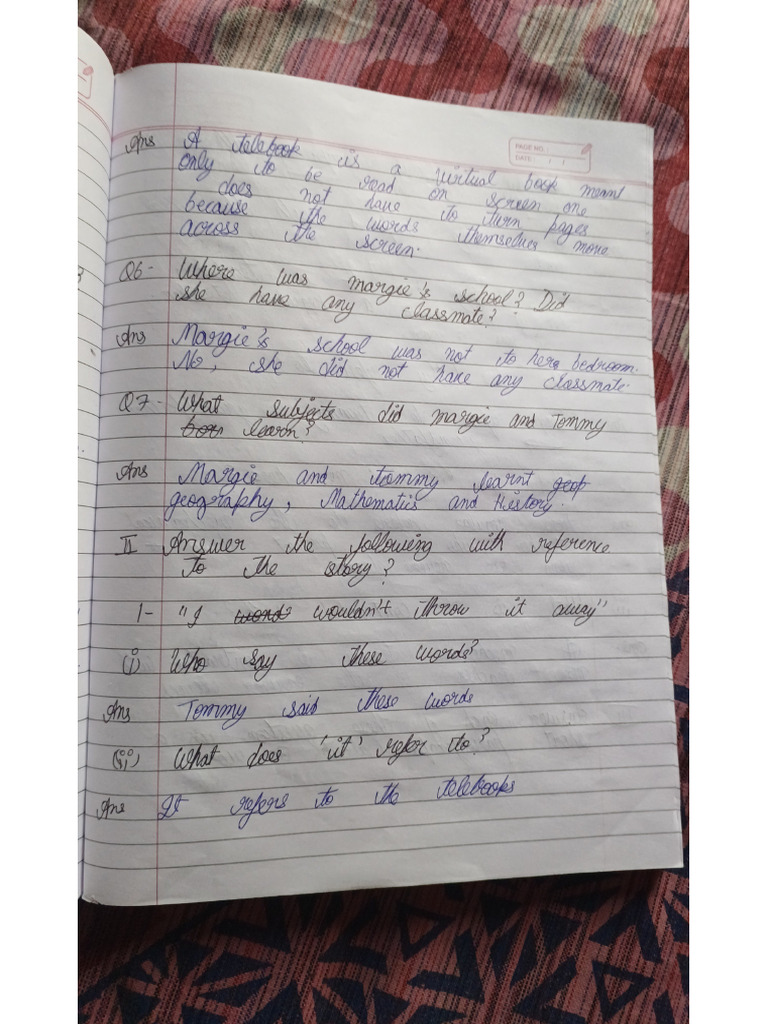 PAGE NO.:
DATE: / /
Ans A telebook is a virtual book meant
only to be read on screen one
does not have to turn pages
because the words themselves move
across the screen.
Q6- Where was margie's school? Did
she have any classmate?
Ans Margie's school was not to here bedroom.
No, she did not have any classmate.
Q7- What subjects did margie and Tommy
learn?
Ans Margie and tommy learnt geop
geography, Mathematics and History.
II Answer the following with reference
to the story?
1- "I words wouldn't throw it away"
(i) Who say these words?
Ans Tommy said these words
(ii) What does 'it' refer to?
Ans It refers to the telebooks